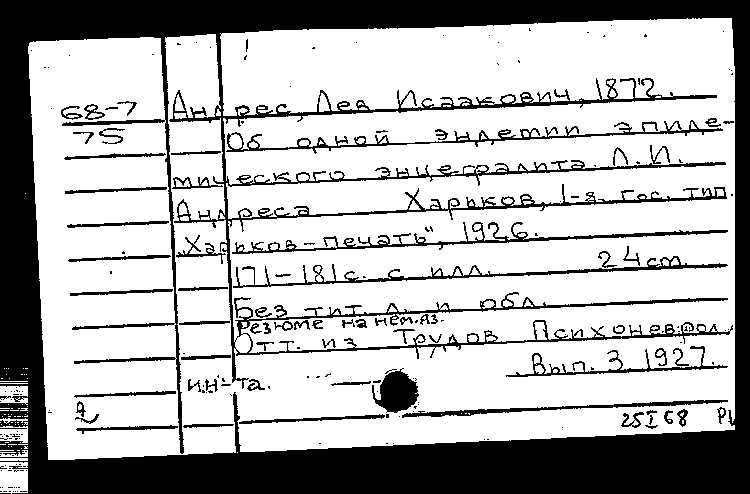 68-7 Андрес, Лев Исаакович, 1872.
75 Об одной эндемии эпиде-
мического энцефалита. Л.И.
Андреса Харьков, 1-я гос. тип.
"Харьков-печать", 1926.
171-181 с. с илл. 24 cm.
Без тит. л. и обл.
Резюме на нем.яз.
Отт. из Трудов Психоневрол.
ин-та. Вып. 3 1927.
25 I 68